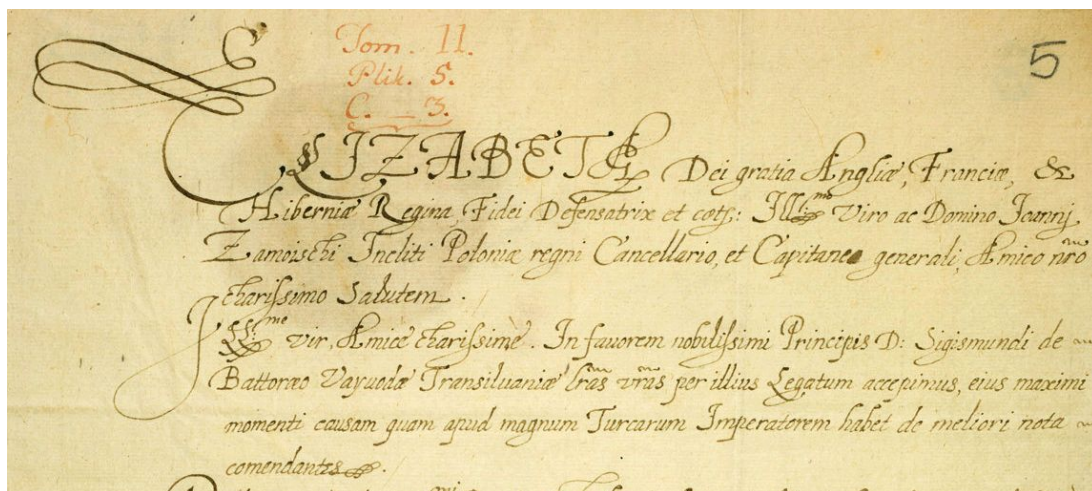 Tom. II.
Plik. 5.
C. 3.
5
ELIZABETH Dei gratia Angliæ, Franciæ, &
Hiberniæ Regina, Fidei Defensatrix et cetȝ: Ill^mo Viro ac Domino Joannj
Zamoischi Incliti Poloniæ regni Cancellario, et Capitaneo generali, Amico nro
charissimo Salutem.
Ill^me vir, Amice charissime. In fauorem nobilissimi Principis D: Sigismundi de
Battoræo Vayuodæ Transiluaniæ lras vras per illius Legatum accepimus, eius maximi
momenti causam quam apud magnum Turcarum Imperatorem habet de meliori nota
comendantes.